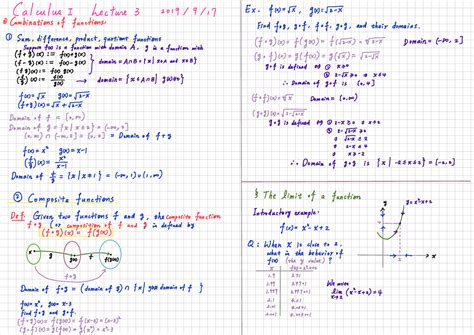 Calculus I Lecture 3 2019/9/17
◎ Combinations of functions:
① Sum, difference, product, quotient functions
Suppose f(x) is a function with domain A, g is a function with
(f+g)(x) := f(x)+g(x)
(f-g)(x) := f(x)-g(x)
domain = A∩B = {x | x∈A and x∈B}
(fg)(x) := f(x)g(x)
domain = {x∈A∩B | g(x)≠0}
f(x)=√x g(x)=√2-x
(f+g)(x) = √x + √2-x
Domain of f = [0,∞)
Domain of g = {x | x≤2} = (-∞, 2]
[0,∞) ∩ (-∞, 2] = [0, 2] = Domain of f+g
f(x)=x² g(x)=x-1
(f/g)(x) = x²/x-1
Domain of f/g = {x | x≠1} = (-∞,1)∪(1,∞)
② Composite functions
Def. Given two functions f and g, the composite function
f∘g (or composition of f and g is defined by
(f∘g)(x) = f(g(x))
x g g(x) f f(g(x))
f∘g
Domain of f∘g = (domain of g) ∩ {x | g(x)∈ domain of f}
f(x)=x², g(x)=x-3
find f∘g and g∘f.
(f∘g)(x) = f(g(x)) = f(x-3) = (x-3)²
(g∘f)(x) = g(f(x)) = g(x²) = x²-3
Ex. f(x)=√x, g(x)=√2-x
Find f∘g, g∘f, f∘f, g∘g, and their domains.
(f∘g)(x) = f(g(x)) = f(√2-x)
Domain = (-∞, 2]
(g∘f)(x) = g(f(x)) = g(√x) = √2-√x
g∘f is defined ⇔ ① x≥0
② 2-√x ≥ 0 ⇒ x≤4
∴ Domain of g∘f = [0,4]
Domain = [0,∞)
g∘g is defined ⇔ ① 2-x ≥ 0 ⇒ x≤2
② 2-√2-x ≥ 0
√2-x ≤ 2
2-x ≤ 4
x ≥ -2
∴ Domain of g∘g is {x | -2≤x≤2} = [-2,2]
§ The limit of a function
Introductory example:
f(x) = x²-x+2
y=x²-x+2
Q: When x is close to 2,
what is the behavior of
f(x) (its y value)?
x f(x)=x²-x+2
1.9
1.99
1.999
We write
lim x→2 (x²-x+2)=4